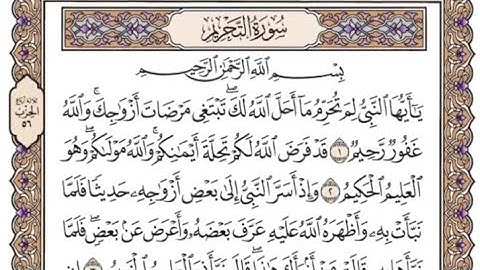 سُورَةُ التَّحْرِيمِ
بِسْمِ ٱللَّهِ ٱلرَّحْمَٰنِ ٱلرَّحِيمِ
يَٰٓأَيُّهَا ٱلنَّبِىُّ لِمَ تُحَرِّمُ مَآ أَحَلَّ ٱللَّهُ لَكَ ۖ تَبْتَغِى مَرْضَاتَ أَزْوَٰجِكَ ۚ وَٱللَّهُ
غَفُورٌ رَّحِيمٌ ١ قَدْ فَرَضَ ٱللَّهُ لَكُمْ تَحِلَّةَ أَيْمَٰنِكُمْ ۚ وَٱللَّهُ مَوْلَىٰكُمْ ۖ وَهُوَ
ٱلْعَلِيمُ ٱلْحَكِيمُ ٢ وَإِذْ أَسَرَّ ٱلنَّبِىُّ إِلَىٰ بَعْضِ أَزْوَٰجِهِۦ حَدِيثًا فَلَمَّا
نَبَّأَتْ بِهِۦ وَأَظْهَرَهُ ٱللَّهُ عَلَيْهِ عَرَّفَ بَعْضَهُۥ وَأَعْرَضَ عَنۢ بَعْضٍ ۖ فَلَمَّا
الحزب
٥٦